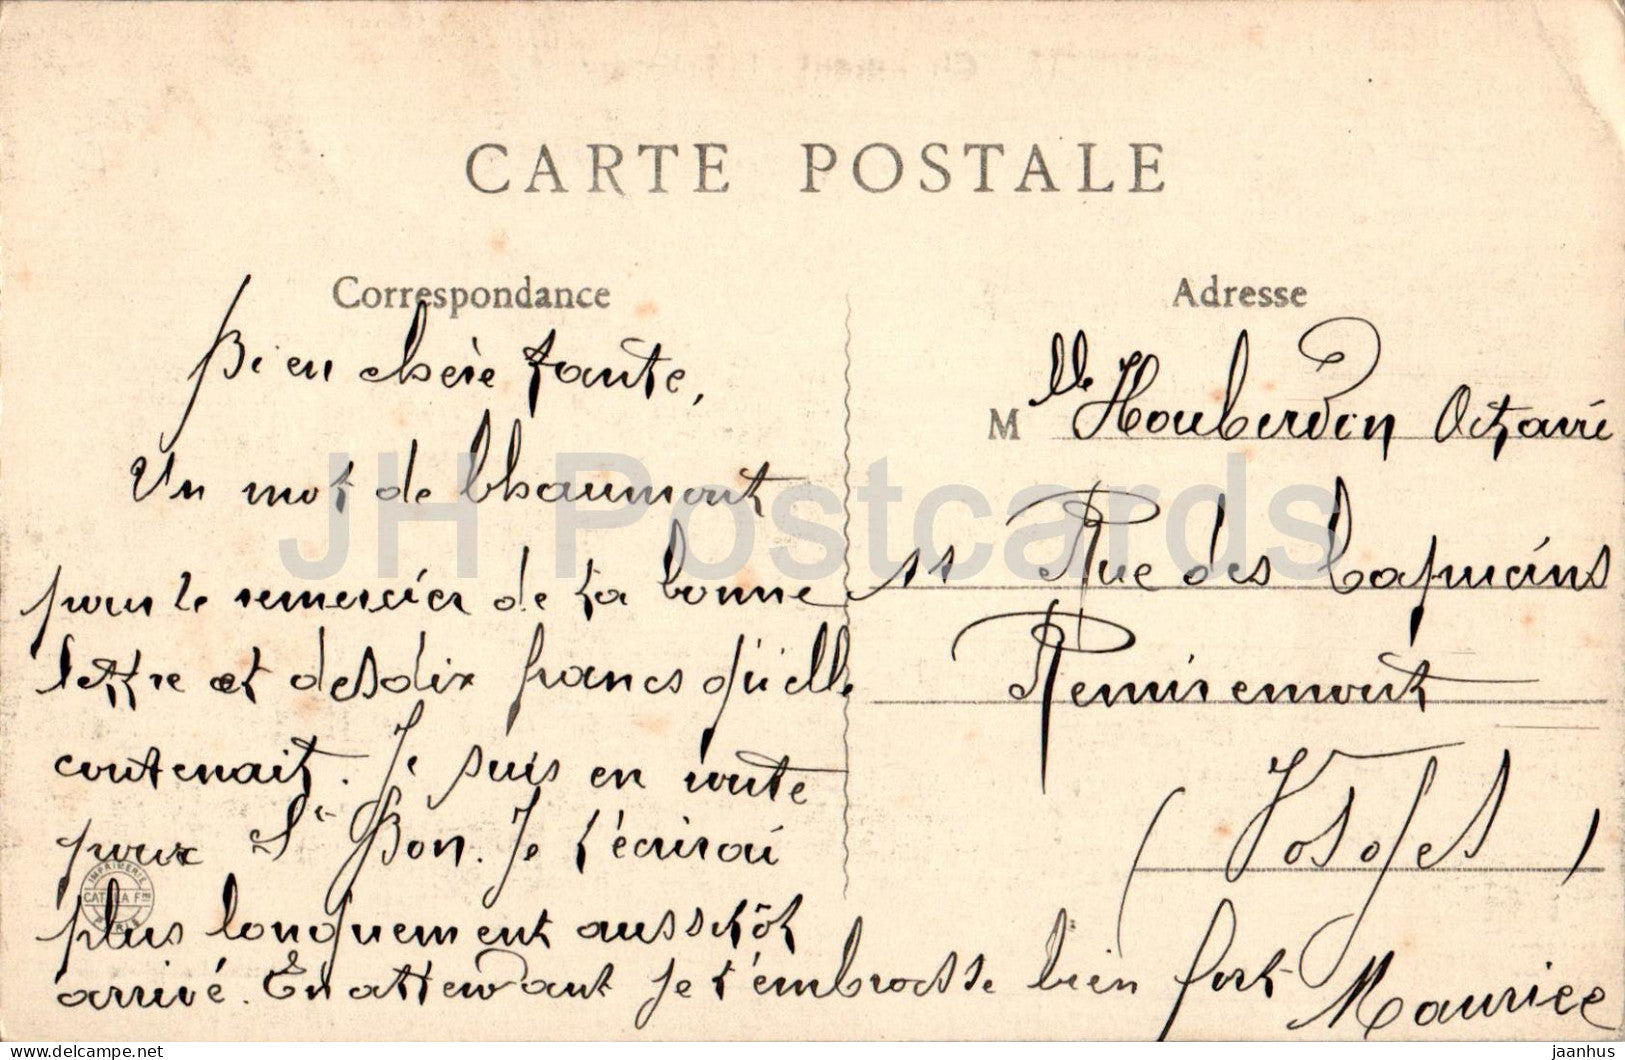 CARTE POSTALE
Correspondance
Bien chère tante,
Un mot de Chaumont
pour te remercier de ta bonne
lettre et des dix francs qu'elle
contenait. Je suis en route
pour St Bon. Je t'écrirai
plus longuement aussitôt
arrivé. En attendant je t'embrasse bien fort
Maurice
Adresse
Mlle Houberdon Octavie
11 Rue des Capucins
Remiremont
(Vosges)
IMPRIMERIE
CATALA Fres
PARIS
JH Postcards
delcampe.net
jaanhus